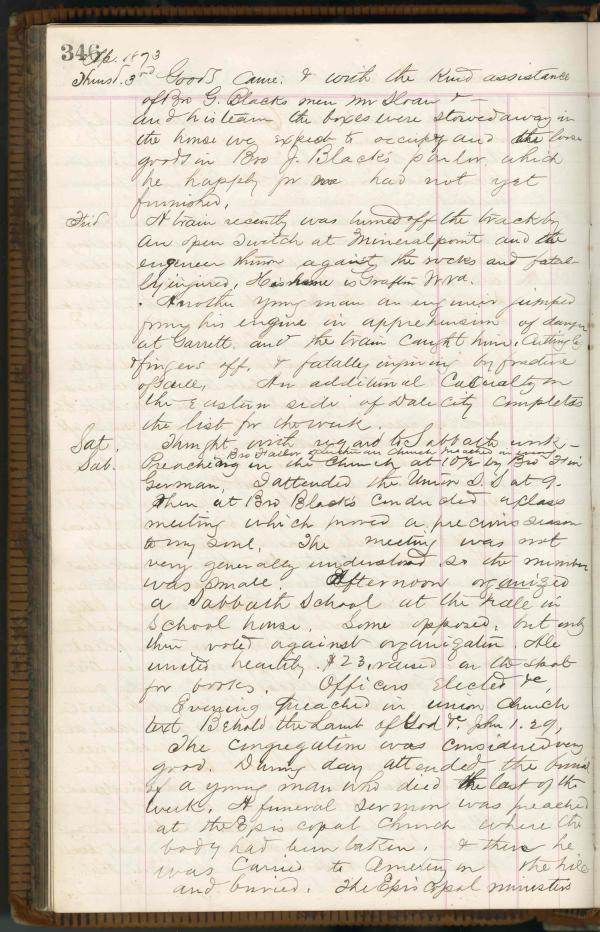 346
Ap. 1873
Thurst. 3rd Goods Came. & with the kind assistance
of Bro G. Blacks men Mr Sloan & —
and his team the boxes were stowed away in
the house we expect to occupy and the loose
goods in Bro J. Black's parlor which
he happly for me had not yet
furnished.
Frid A train recently was turned off the track by
an open switch at Mineral point and the
engineer thrown against the rocks and fatal-
ly injured. His home is Grafton W. Va.
Another young man an engineer jumped
from his engine in apprehension of danger
at Garrett and the train caught him, Cutting leg
& fingers off, & fatally injuring by fracture
of skull. An additional Casualty on
the Eastern side of Dale City completes
the list for the week.
Sat. Thought with regard to Sabbath work—
Bro of Lutheran Church preached in evening
Sab. Preaching in the Church at 10½ by Bro in
German. I attended the Union S. S at 9.
Then at Bro Black's conducted a class
meeting which proved a precious season
to my soul. The meeting was not
very generally understood so the number
was small. Afternoon organized
a Sabbath School at the vale in
School house. Some opposed, but only
three voted against organization. All
united heartily. $23. raised on the spot
for books. Officers Elected &c,
Evening preached in union Church
text. Behold the Lamb of God &c. John 1. 29,
The congregation was considered very
good. During day attended the burial
of a young man who died the last of the
week. A funeral sermon was preached
at the Episcopal Church where the
body had been taken. & then he
was Carried to Cemetery on the hill
and buried. The Episcopal ministers